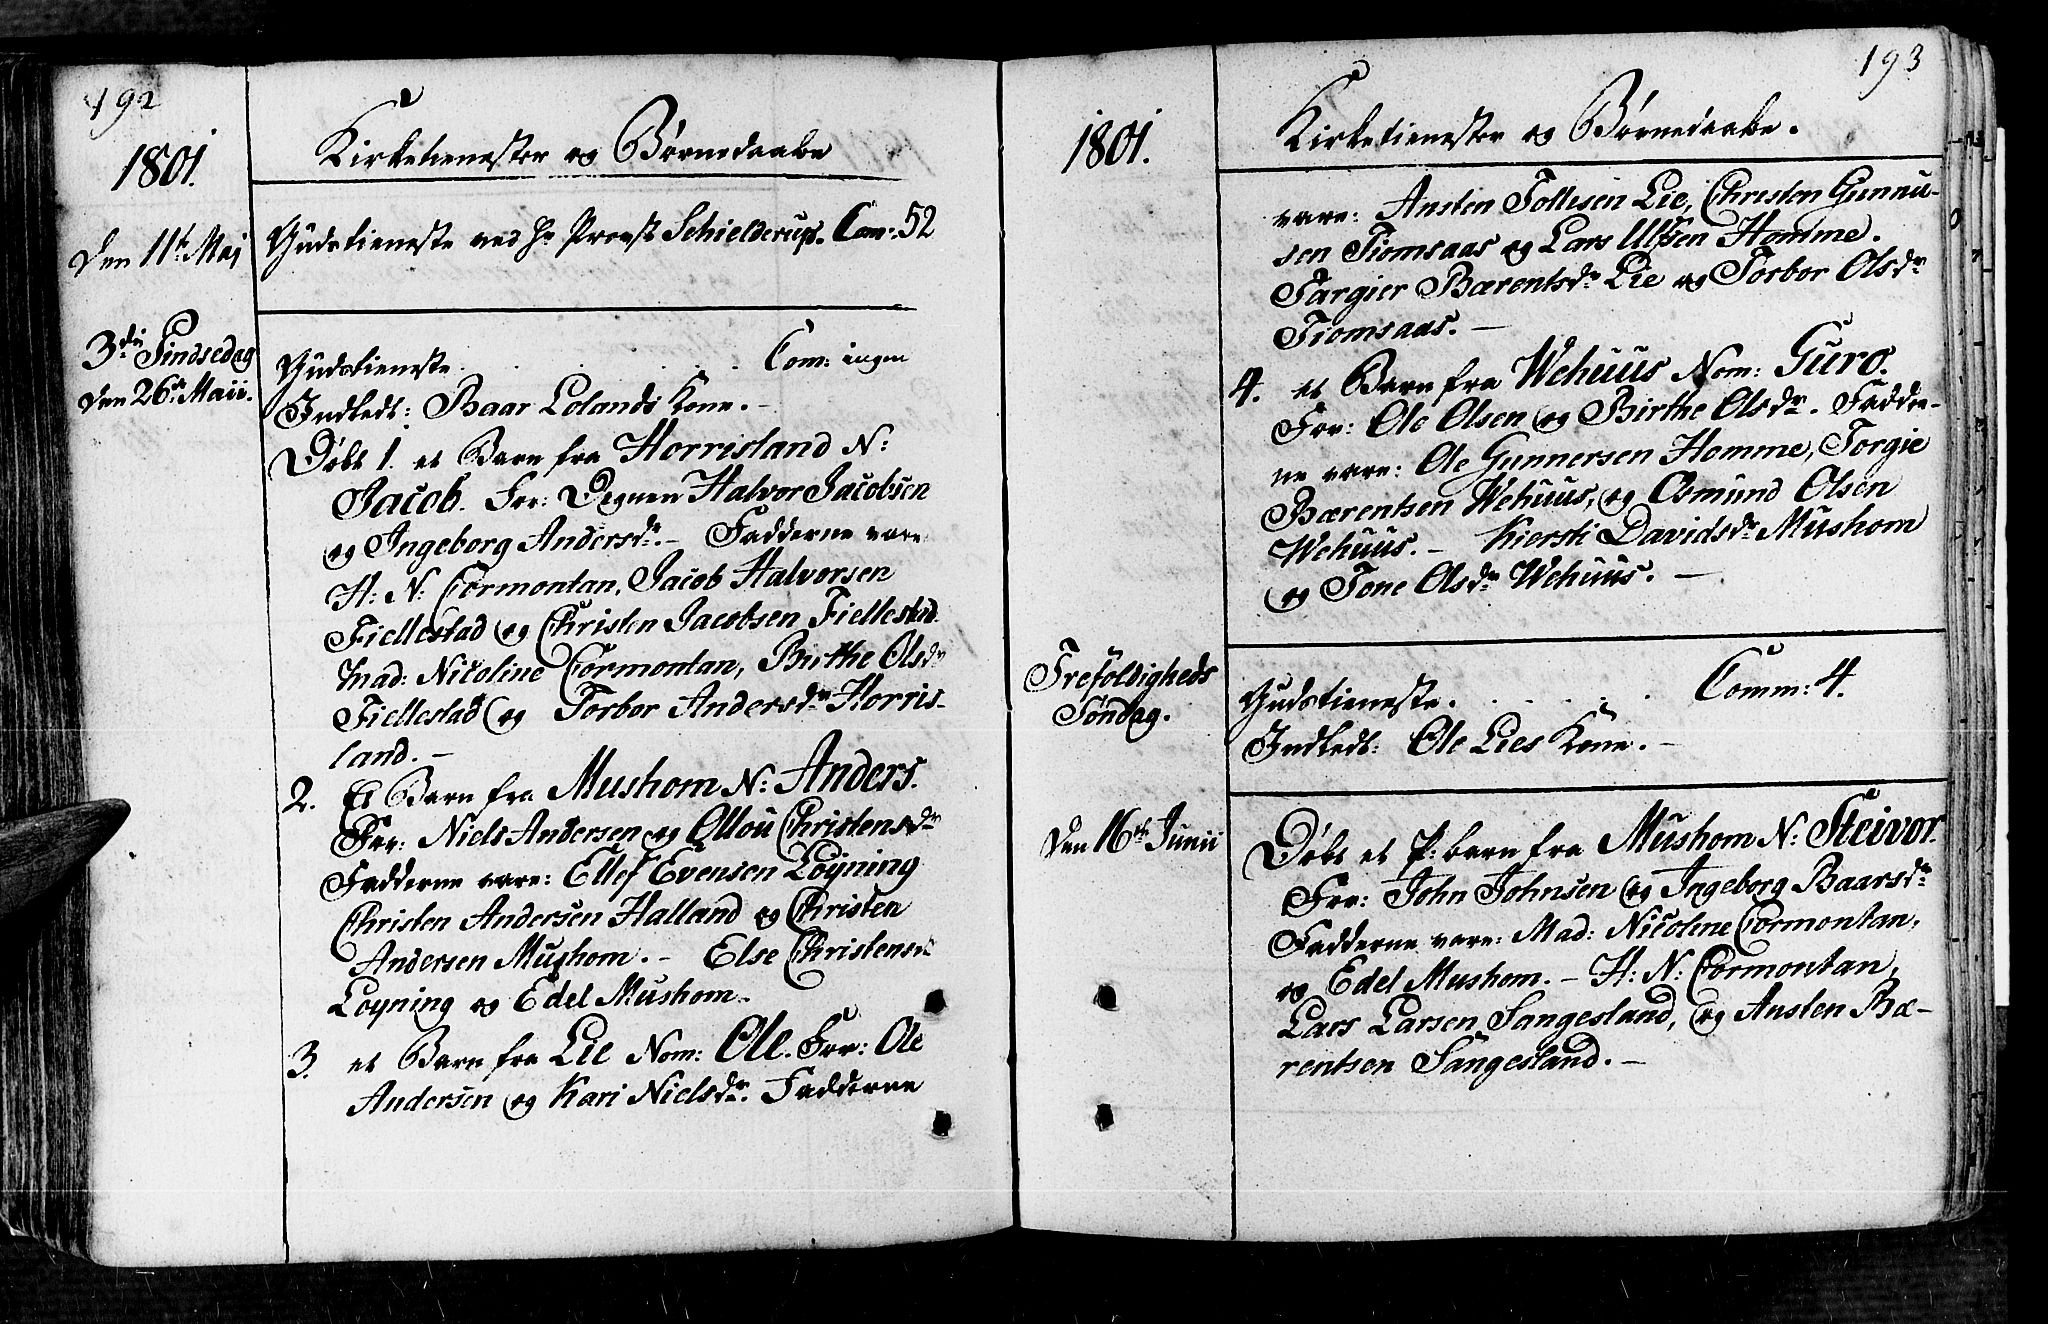 192
1801.
Kirketienester og Børnedaabe
Den 11te Maj
Gudstieneste ved Hr Provst Schielderup. Com: 52
3die Pindsedag
den 26de Maii.
Gudstieneste . . . . . . Com: ingen
Indledt: Baar Lolands Kone. –
Døbt 1. et Barn fra Horrisland N:
Jacob. For: Degnen Halvor Jacobsen
og Ingeborg Andersdr. – Fadderne vare
H: N: Cormontan, Jacob Halvorsen
Fiellestad og Christen Jacobsen Fiellestad.
Mad: Nicoline Cormontan, Birthe Olsdr
Fiellestad og Torbor Andersdr Horris-
land. –
2. Et Barn fra Mushom N: Anders.
For: Niels Andersen og Ollou Christensdr
Fadderne vare: Ellef Evensen Løyning
Christen Andersen Halland og Christen
Andersen Mushom. – Else Christensdr
Løyning og Edel Mushom.
3. et Barn fra Lie Nom: Ole. For: Ole
Andersen og Kari Nielsdr. Fadderne
193
1801.
Kirketienester og Børnedaabe.
vare: Austen Tollisen Lie, Christen Gunnu-
sen Tiomsaas og Lars Ulfsen Homme.
Targier Bærentsdr Lie og Torbor Olsdr
Tiomsaas. –
4. et Barn fra Wehuus Nom: Guro.
For: Ole Olsen og Birthe Olsdr. Fadder-
ne vare: Ole Gunnersen Homme, Torgie
Bærentsen Wehuus, og Osmund Olsen
Wehuus. – Kiersti Davidsdr Mushom
og Tone Olsdr Wehuus. –
Trefoldigheds
Søndag.
Gudstieneste. . . . . . Comm: 4.
Indledt: Ole Lies Kone. –
Den 16de Junii
Døbt et P: barn fra Mushom N: Steivor.
For: John Johnsen og Ingeborg Baarsdr
Fadderne vare: Mad: Nicoline Cormontan,
og Edel Mushom. – H: N: Cormontan,
Lars Larsen Sangesland, og Austen Bæ-
rentsen Sangesland. –